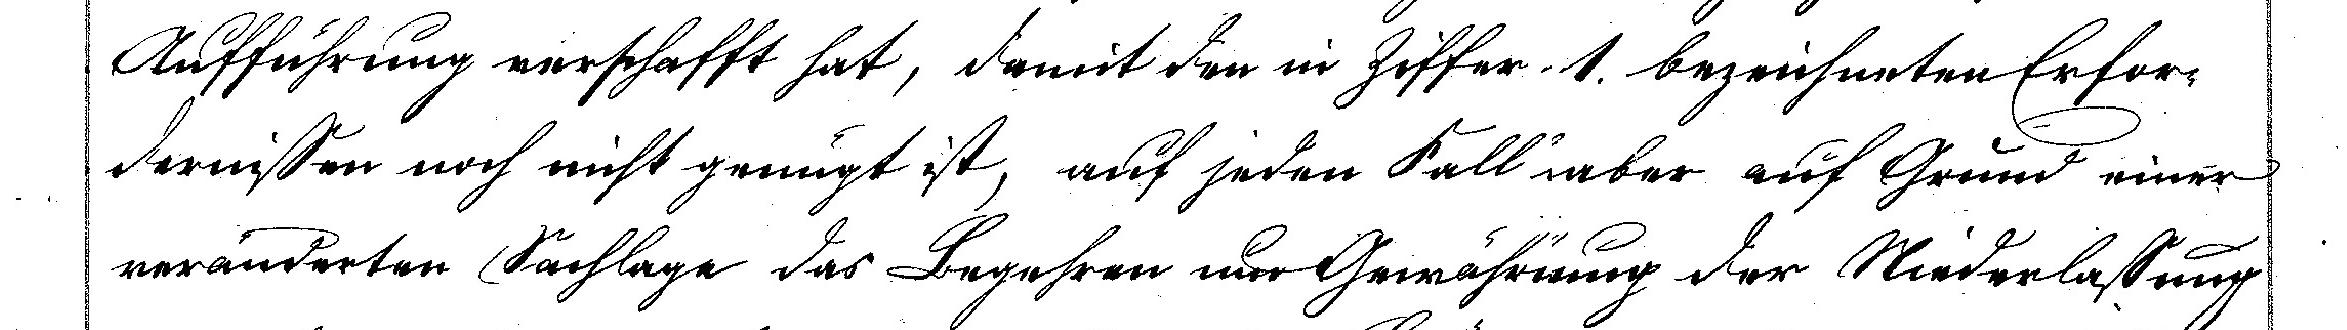 Aufführung verschafft hat, damit den in Ziffer 1. bezeichneten Erfor-
dernissen noch nicht genügt ist, auf jeden Fall aber auf Grund einer
veränderten Sachlage das Begehren um Gewährung der Niederlassung